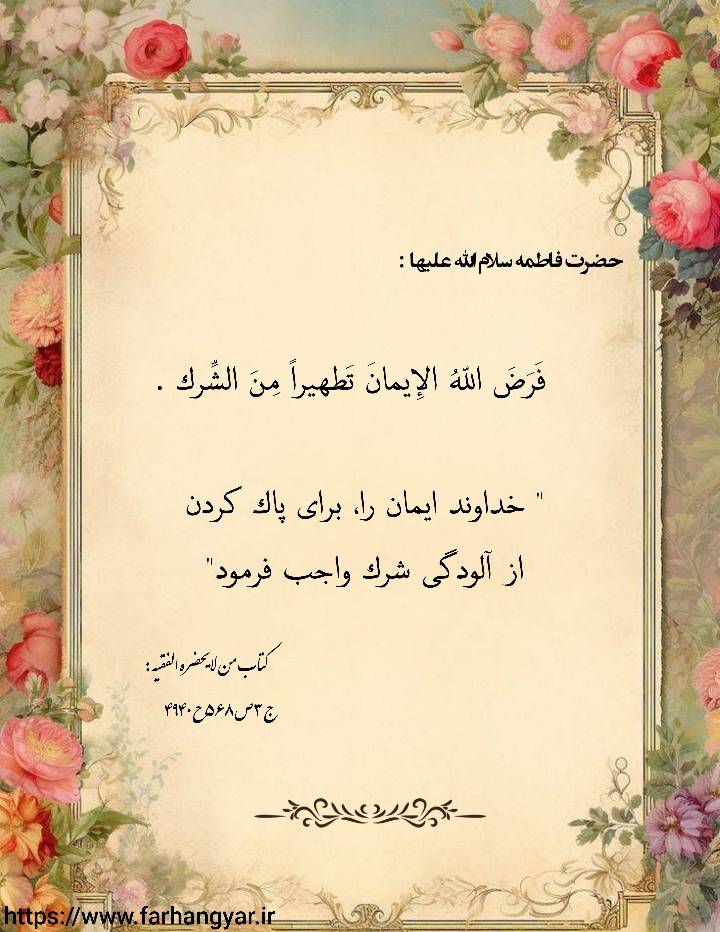 حضرت فاطمه سلام الله علیها :
فَرَضَ اللّهُ الإِيمانَ تَطهيراً مِنَ الشِّرك .
" خداوند ایمان را، برای پاك كردن
از آلودگی شرك واجب فرمود"
کتاب من لایحضره الفقیه :
ج ۳ص ۵۶۸ح ۴۹۴۰
https://www.farhangyar.ir